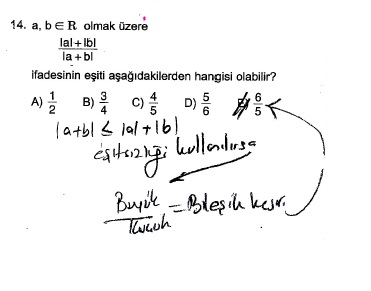 14. a, b ∈ R olmak üzere
|a| + |b|
|a + b|
ifadesinin eşiti aşağıdakilerden hangisi olabilir?
A) 1/2 B) 3/4 C) 4/5 D) 5/6 E) 6/5
|a+b| ≤ |a|+|b|
eşitsizliği kullanılırsa
Büyük
Küçük
= Bileşik kesir.